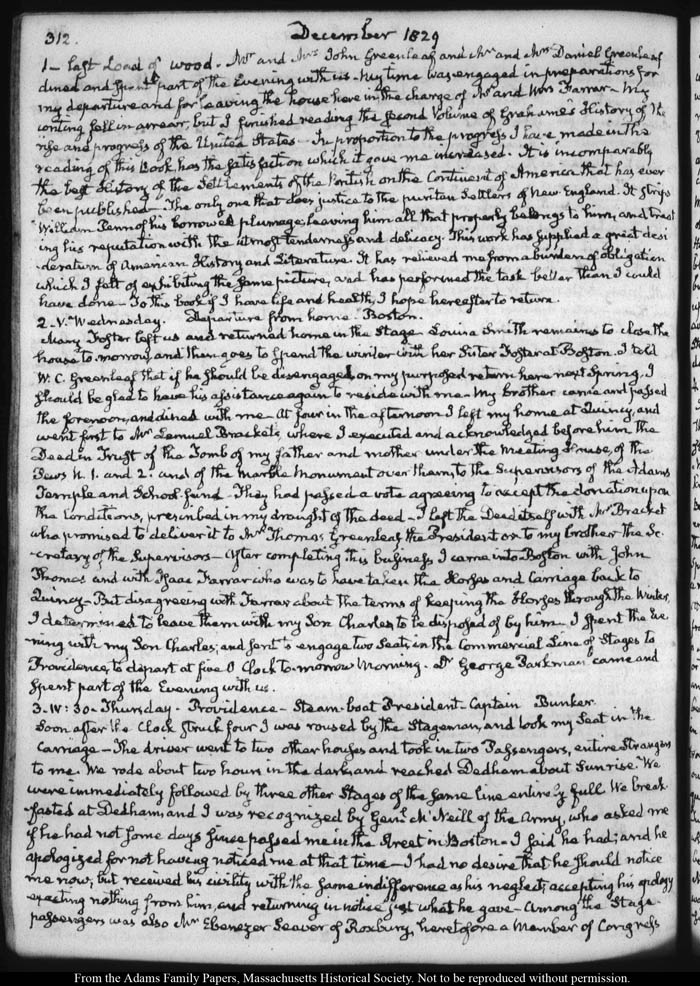 312.
December 1829
1— last Load of wood. Mr. and Mrs. John Greenleaf and Mr. and Mrs. Daniel Greenleaf
dined and spent part of the Evening with us. My time was engaged in preparations for
my departure and for leaving the house here in the charge of Mr. and Mrs. Farrar— My
writing fell in arrear, but I finished reading the second Volume of Grahame's History of the
rise and progress of the United States— In proportion to the progress I have made in the
reading of this Book, has the satisfaction which it gave me increased. It is incomparably
the best History of the Settlements of the British on the Continent of America that has ever
been published— The only one that does justice to the puritan Settlers of New England. It strips
William Penn of his borrowed plumage, leaving him all that properly belongs to him, and treat
ing his reputation with the utmost tenderness and delicacy. This work has supplied a great desi
-deratum of American History and Literature. It has relieved me from a burden of obligation
which I felt of exhibiting the same picture, and has performed the task better than I could
have done— To this book if I have life and health, I hope hereafter to return.
2.V. Wednesday. Departure from home. Boston.
Mary Foster left us and returned home in the Stage. Louisa Smith remains to close the
house to-morrow, and then goes to spend the winter with her Sister Foster at Boston. I told
W. C. Greenleaf that if he should be disengaged on my purposed return here next Spring, I
should be glad to have his assistance again to reside with me— My brother came and passed
the forenoon, and dined with me— At four in the afternoon I left my home at Quincy, and
went first to Mr. Lemuel Bracket's, where I executed and acknowledged before him the
Deed in Trust of the Tomb of my father and mother under the Meeting House, of the
Pews N. 1. and 2. and of the marble Monument over them, to the Supervisors of the Adams
Temple and School fund— They had passed a vote agreeing to accept the donation upon
the conditions, prescribed in my draught of the deed— I left the Deed itself with Mr. Bracket
who promised to deliver it to Mr. Thomas Greenleaf the President or to my brother the Se-
-cretary of the Supervisors— After completing this business I came into Boston with John
Thomas and with Isaac Farrar who was to have taken the Horses and Carriage back to
Quincy— But disagreeing with Farrar about the terms of keeping the Horses through the Winter,
I determined to leave them with my Son Charles, to be disposed of by him— I spent the Eve-
ning with my Son Charles; and sent to engage two Seats, in the Commercial Line of Stages to
Providence, to depart at five O'Clock to-morrow Morning. Dr. George Parkman came and
spent part of the Evening with us.
3.IV:30. Thursday. Providence— Steam-boat President— Captain Bunker
Soon after the Clock struck four I was roused by the Stageman, and took my Seat in the
Carriage— The driver went to two other houses and took in two Passengers, entire Strangers
to me. We rode about two hours in the dark, and reached Dedham about Sunrise. We
were immediately followed by three other Stages of the same line entirely full. We break-
-fasted at Dedham, and I was recognized by Genl. McNeill of the Army, who asked me
if he had not some days since passed me in the street in Boston— I said he had; and he
apologized for not having noticed me at that time— I had no desire that he should notice
me now, but received his civility with the same indifference as his neglect; accepting his apology
exacting nothing from him, and returning in notice just what he gave— Among the Stage
passengers was also Mr. Ebenezer Seaver of Roxbury, heretofore a Member of Congress
From the Adams Family Papers, Massachusetts Historical Society. Not to be reproduced without permission.